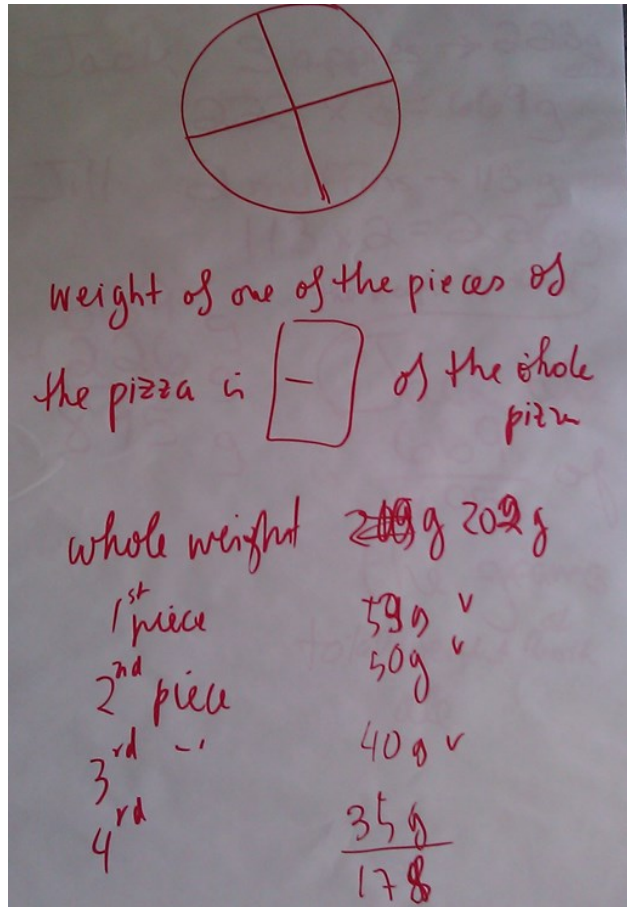 weight of one of the pieces of
the pizza is — of the whole
pizza
whole weight g 209 g
1st piece 59g v
2nd piece 50g v
3rd -" 40g v
4rd 35g
178